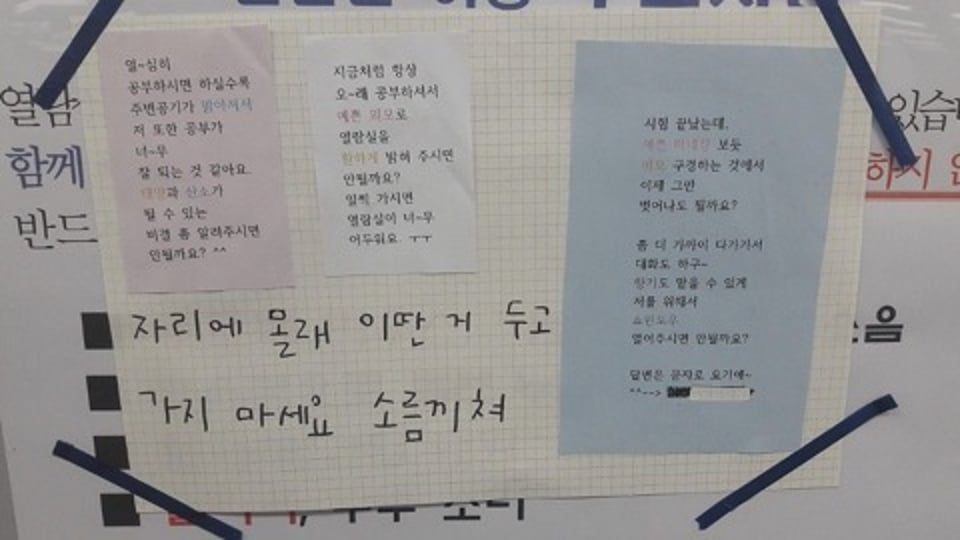 열~심히
공부하시면 하실수록
주변공기가 맑아져서
저 또한 공부가
너~무
잘 되는 것 같아요.
태양과 산소가
될 수 있는
비결 좀 알려주시면
안될까요? ^^
지금처럼 항상
오~래 공부하셔서
예쁜 외모로
열람실을
환하게 밝혀 주시면
안될까요?
일찍 가시면
열람실이 너~무
어두워요. ㅜㅜ
시험 끝났는데,
예쁜 마네킹 보듯
외모 구경하는 것에서
이제 그만
벗어나도 될까요?
좀 더 가까이 다가가서
대화도 하구~
향기도 맡을 수 있게
저를 위해서
쇼윈도우
열어주시면 안될까요?
답변은 문자로 요기에~
^^-->
자리에 몰래 이딴 거 두고
가지 마세요 소름끼쳐
열람
함께
반드
하지
소음
소리